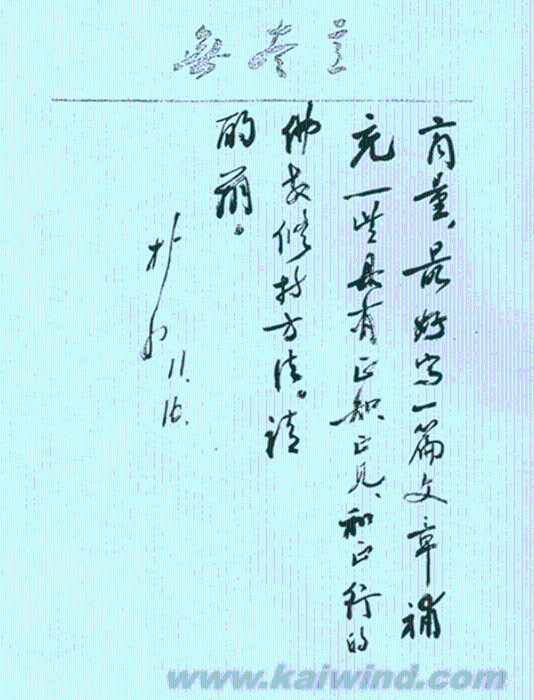 無尽意
商量，最好写一篇文章補
充一些具有正知正见、和正行的
佛教修持方法。请
酌荫。
朴初
11.16.
www.kaiwind.com